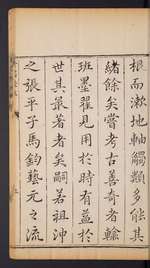 根而漱地軸觸類多能其
緒餘矣嘗考古善奇者輸
班墨翟見用於時有益於
世其最著者矣嗣若祖沖
之張平子馬鈞藝元之流